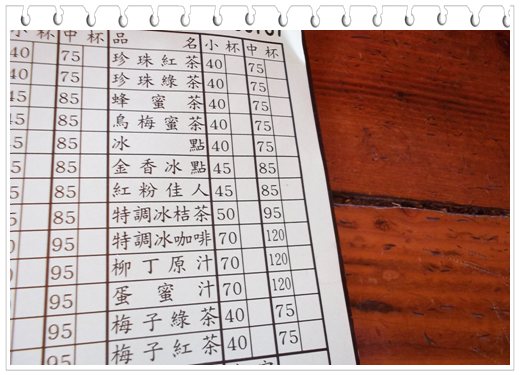 小 杯 中 杯 品 名 小 杯 中 杯
40 75 珍珠紅茶 40 75
40 75 珍珠綠茶 40 75
45 85 蜂蜜茶 40 75
45 85 烏梅蜜茶 40 75
85 冰點 40 75
85 金香冰點 45 85
85 紅粉佳人 45 85
85 特調冰桔茶 50 95
95 特調冰咖啡 70 120
95 柳丁原汁 70 120
95 蛋蜜汁 70 120
95 梅子綠茶 40 75
95 梅子紅茶 40 75